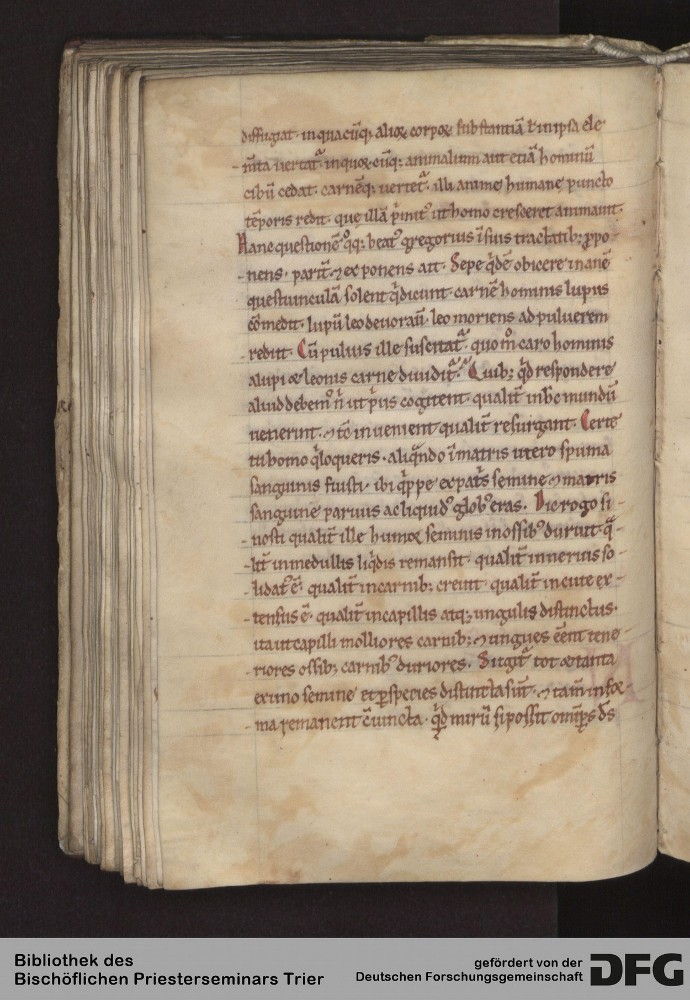 diffugiat · in quacūq; alioꝝ corpoꝝ substantiā ł in ipsa ele
m̄ta uertatᷓ · in quoꝝcūq; animalium aut etiā hominū
cibū cedat · carnēq; uertetᷓ · illi anime humane puncto
tēporis redit · que illā p̄mit᷒ ut homo cresceret animauit ·
Hanc questionē q̊q; beat᷒ gregorius ī suis tractatib; ꝓpo
nens · parit̄ ⁊ exponens ait · Sepe q̄dē obicere inanē
questiunculā solent q̄ dicunt · carnē hominis lupus
cōmedit · lupū leo deuorauit̄ · leo moriens ad puluerem
rediit · Cū puluis ille suscitatᷓ · quom̊ caro hominis
a lupi ⁊ leonis carne diuidit᷑ · Quib; q̄d respondere
aliud debem᷒ n̄ ut p̄us cogitent · qualit̄ in h̄c mundū
uenerint · ⁊ tc̄ inuenient qualit̄ resurgant · Certe
tu homo q̄ loqueris · aliq̄ndo ī matris utero spuma
sanguinis fuisti · ibi q̄ppe ex pat̄s semine ⁊ matris
sanguine paruus ac liquid᷒ glob᷒ eras · Dic rogo si
nosti qualit̄ ille humor seminis in ossib᷒ duruit · q̄
lit̄ in medullis liq̄dis remansit · qualit̄ in neruis so
lidat᷒ ē · qualit̄ in carnib; creuit · qualit̄ in cute ex
tensus ē · qualit̄ in capillis atq; ungulis distinctus ·
ita ut capilli molliores carnib; ⁊ ungues eēnt tene
riores ossib; carnib᷒ duriores · Si igit᷑ tot ⁊ tanta
ex uno semine et ꝑ species distincta sūt · ⁊ tam̄ in for
ma remanent c̄iuncta · q̄d mirū si possit omp̄s d̄s
Bibliothek des
Bischöflichen Priesterseminars Trier
gefördert von der
Deutschen Forschungsgemeinschaft
DFG